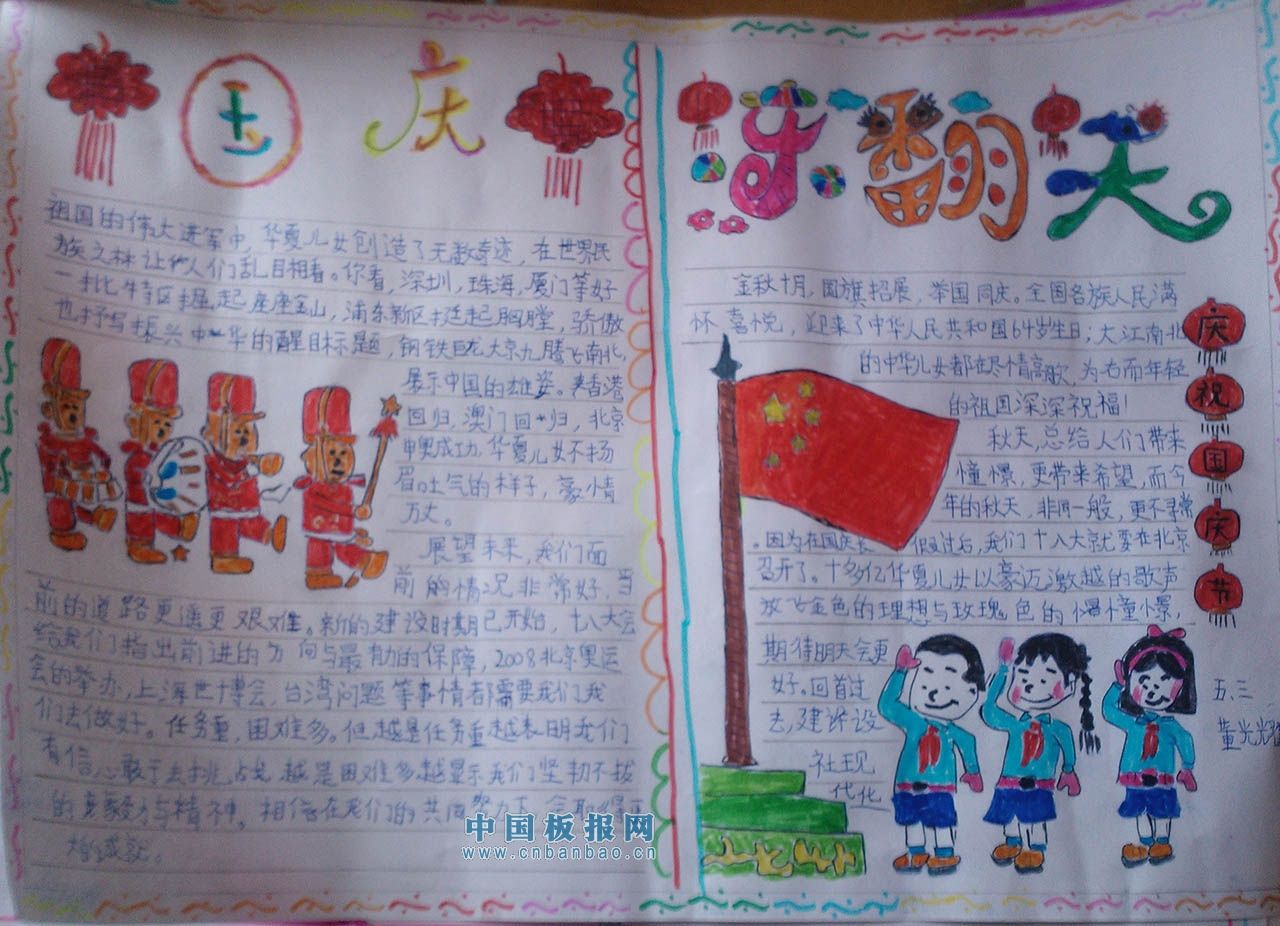 国 庆
祖国的伟大进军中,华夏儿女创造了无数奇迹,在世界民
族之林让他人们乱目相看。你看,深圳,珠海,厦门等好
一批特区掘起,座座金山,浦东新区挺起胸膛,骄傲
也抒写振兴中华的醒目标题,钢铁巨龙大京九腾飞南北,
展示中国的雄姿。香港
回归,澳门回归,北京
申奥成功,华夏儿女不扬
眉吐气的样子,豪情
万丈。
展望未来,我们面
前的情况非常好,当
前的道路更遥更艰难。新的建设时期已开始,十八大会
给我们指出前进的方向与最有力的保障,2008北京奥运
会的举办,上海世博会,台湾问题等事情都需要我们我
们去做好。任务重,困难多。但越是任务重越表明我们
有信心敢于去挑战,越是困难多越显示我们坚韧不拔
的毅力与精神。相信在我们的共同努力下,会取得
的成就。
乐翻天
金秋十月,国旗招展,举国同庆。全国各族人民满
怀喜悦,迎来了中华人民共和国64岁生日;大江南北
的中华儿女都在尽情高歌,为古而年轻
的祖国深深祝福!
秋天,总给人们带来
憧憬,更带来希望,而今
年的秋天,非同一般,更不寻常
。因为在国庆长假过后,我们十八大就要在北京
召开了。十多亿华夏儿女以豪迈激越的歌声
放飞金色的理想与玫瑰色的憧憬,
期待明天会更
好。回首过
去,建设
社现
代化
庆
祝
国
庆
节
五.三
董光耀
中国板报网
www.cnbanbao.cn